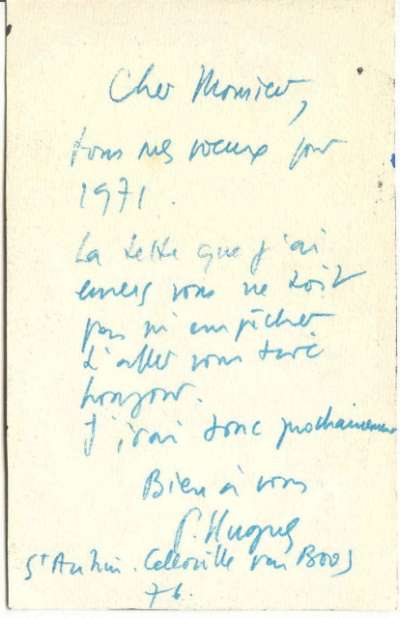 Cher Monsieur,
tous mes voeux pour
1971.
La dette que j'ai
envers vous ne doit
pas m'empêcher
d'aller vous dire
bonjour.
J'irai donc prochainement
Bien à vous
P. Hugues
St Aubin. Celloville par Boos
76.